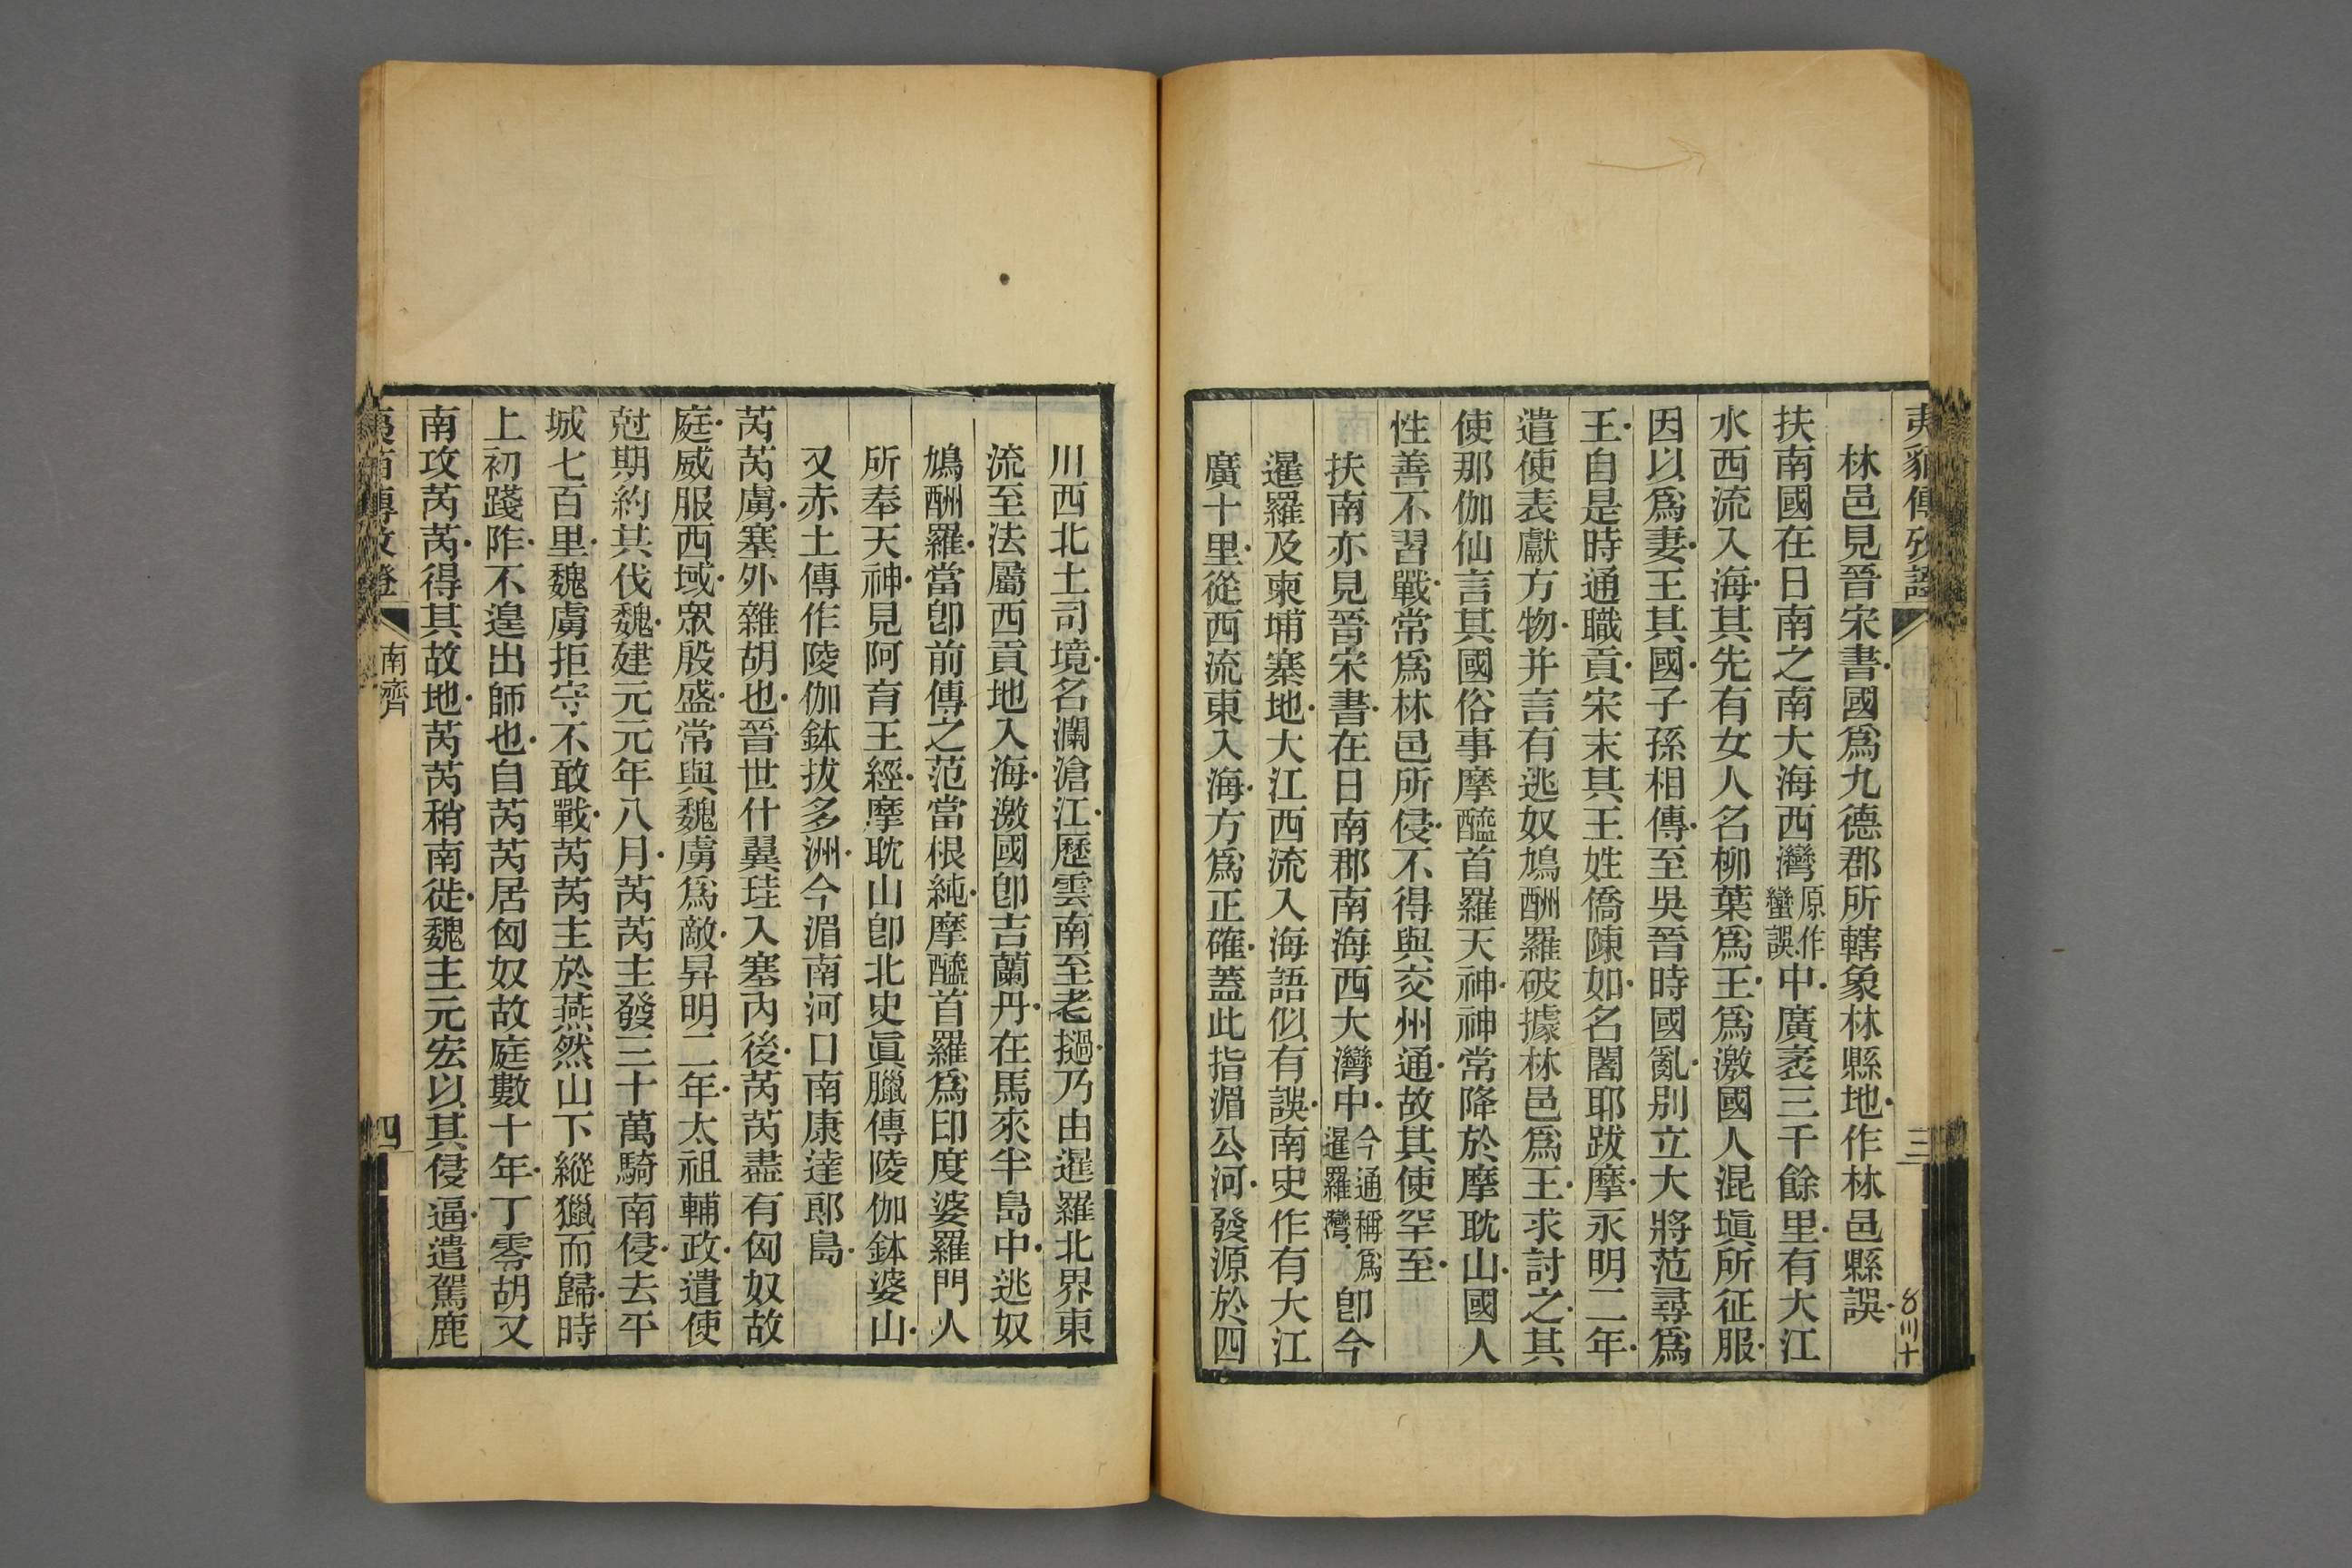 林邑見晉宋書國爲九德郡所轄象林縣地作林邑縣誤
扶南國在日南之南大海西灣原作蠻誤中廣袤三千餘里有大江
水西流入海其先有女人名柳葉爲王爲激國人混塡所征服
因以爲妻王其國子孫相傳至吳晉時國亂別立大將范尋爲
王自是時通職貢宋末其王姓僑陳如名闍耶跋摩永明二年
遣使表獻方物并言有逃奴鳩酬羅破據林邑爲王求討之其
使那伽仙言其國俗事摩醯首羅天神神常降於摩耽山國人
性善不習戰常爲林邑所侵不得與交州通故其使罕至
扶南亦見晉宋書在日南郡南海西大灣中今通稱爲暹羅灣卽今
暹羅及柬埔寨地大江西流入海語似有誤南史作有大江
廣十里從西流東入海方爲正確蓋此指湄公河發源於四
川西北土司境名瀾滄江歷雲南至老撾乃由暹羅北界東
流至法屬西貢地入海激國卽吉蘭丹在馬來半島中逃奴
鳩酬羅當卽前傳之范當根純摩醯首羅爲印度婆羅門人
所奉天神見阿育王經摩耽山卽北史眞臘傳陵伽鉢婆山
又赤土傳作陵伽鉢拔多洲今湄南河口南康達郞島
芮芮虜塞外雜胡也晉世什翼珪入塞內後芮芮盡有匈奴故
庭威服西域眾殷盛常與魏虜爲敵昇明二年太祖輔政遣使
尅期約其伐魏建元元年八月芮芮主發三十萬騎南侵去平
城七百里魏虜拒守不敢戰芮芮主於燕然山下縱獵而歸時
上初踐阼不遑出師也自芮芮居匈奴故庭數十年丁零胡又
南攻芮芮得其故地芮芮稍南徙魏主元宏以其侵逼遣駕鹿
南齊
四